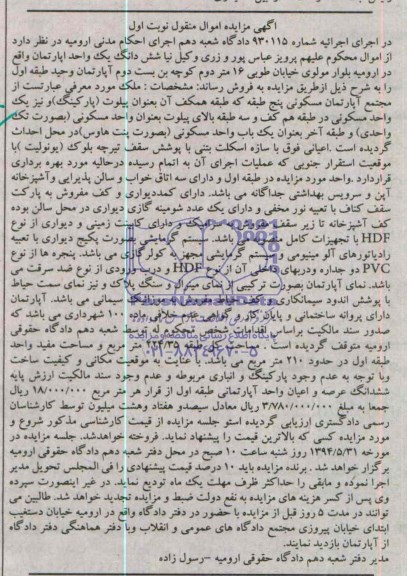 آگهی مزایده اموال منقول نوبت اول
در اجرای اجرائیه شماره ۹۳۰۱۱۵ دادگاه شعبه دهم اجرای احکام مدنی ارومیه در نظر دارد
از اموال محکوم علیهم پرویز عباس پور و زری وکیل نیا شش دانگ یک واحد اپارتمان واقع
در ارومیه بلوار مولوی خیابان طوبی ۱۶ متر دوم کوچه بن بست دوم آپارتمان وحید طبقه اول
را به شرح ذیل ازطریق مزایده به فروش رساند: مشخصات : ملک مورد معرفی عبارتست از
مجتمع آپارتمان مسکونی پنج طبقه که طبقه همکف آن بعنوان پیلوت (پارکینگ)و نیز یک
واحد مسکونی در طبقه هم کف و سه طبقه بالای پیلوت بعنوان واحد مسکونی (بصورت تک
واحدی) و طبقه آخر بعنوان یک باب واحد مسکونی (بصورت پنت هاوس)در محل احداث
گردیده است .اعیانی فوق با سازه اسکلت بتنی با پوشش سقف تیرچه بلوک (یونولیت )با
موقعیت استقرار جنوبی که عملیات اجرای آن به اتمام رسیده درحالیه مورد بهره برداری
قراردارد .واحد مورد مزایده در طبقه اول و دارای سه اتاق خواب و سالن پذیرایی وآشپزخانه
آپن و سرویس بهداشتی جداگانه می باشد. دارای کمددیواری و کف مفروش به پارکت
سقف کناف با تعبیه نور مخفی و دارای یک عدد شومینه گازی دیواری در محل سالن بوده
کف آشپزخانه تا زیر سقف سرامیک و دارای کابینت زمینی و دیواری از نوع
HDF با تجهیزات کامل می باشد. سیستم گرمایشی بصورت پکیج دیواری با تعبیه
رادیاتورهای آلومینیومی و سیستم گرمایشی مجهز به کولرگازی می باشد. پنجره ها از نوع
PVC دو جداره ودربهای داخلی آن از نوع HDF و درب ورودی از نوع ضد سرقت می
باشد. نمای آپارتمان بصورت ترکیبی از نمای مینرال و سنگ پلاک و نیز نمای سمت حیاط
با پوشش اندود سیمانکاری و کف حیاط مفروش به موزائیک سیمانی می باشد. آپارتمان
دارای پروانه ساختمانی و پایان کار و گواهی عدم خلافی ماده ۱۰۰ شهرداری می باشد که
صدور سند مالکیت براساس اقدامات شخص محکوم له توسط شعبه دهم دادگاه حقوقی
ارومیه متوقف گردیده است . مساحت کل عرصه ۲۲۴/۳۵ متر مربع و مساحت مفید واحد
طبقه اول در حدود ۲۱۰ متر مربع می باشد. با عنایت به موقعیت مکانی و کیفیت ساخت
وبا توجه به عدم وجود پارکینگ و انباری مربوطه و عدم وجود سند مالکیت ارزش پایه
ششدانگ عرصه و اعیان واحد آپارتمانی طبقه اول از قرار هر متر مربع ۱۸/۰۰۰/۰۰۰ ریال
جمعا به مبلغ ۳/۷۸۰/۰۰۰/۰۰۰ ریال معادل سیصدو هفتاد وهشت میلیون توسط کارشناسان
رسمی دادگستری ارزیابی گردیده استو جلسه مزایده از قیمت کارشناسی مذکور شروع و
مورد مزایده کسی که بالاترین قیمت را پیشنهاد نماید. فروخته خواهدشد. جلسه مزایده در
مورخه ۱۳۹۴/۵/۳۱ روز شنبه ساعت ۱۰ صبح در محل دفتر شعبه دهم دادگاه حقوقی ارومیه
برگزار خواهد شد . برنده مزایده باید ۱۰ درصد قیمت پیشنهادی را فی المجلس تحویل مدیر
اجرا نموده و مابقی را حداکثر ظرف مهلت یک ماه تودیع نماید. در غیر اینصورت سپرده
وی پس از کسر هزینه های مزایده به نفع دولت ضبط و مزایده تجدید خواهد شد. طالبین می
توانند در مدت ۵ روز قبل از مزایده با حضور در دفتر دادگاه واقع در ارومیه خیابان دستغیب
ابتدای خیابان پیروزی مجتمع دادگاه های عمومی و انقلاب وبا دفتر هماهنگی دفتر دادگاه
از آپارتمان بازدید نمایند.
مدیر دفتر شعبه دهم دادگاه حقوقی ارومیه -رسول زاده
پایگاه اطلاع رسانی مناقصه و مزایده
۰۲۱-۸۸۳۴۹۶۷۰-۵